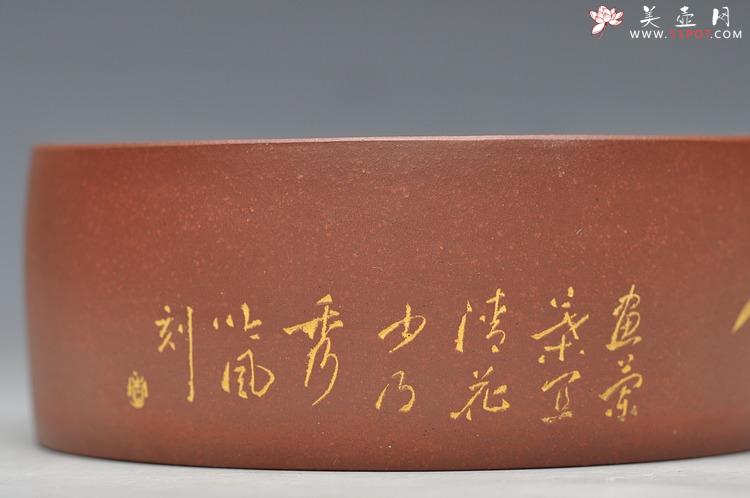 美壶网
WWW.51POT.COM
画兰
叶宜
清花
少乃
秀
风
刻